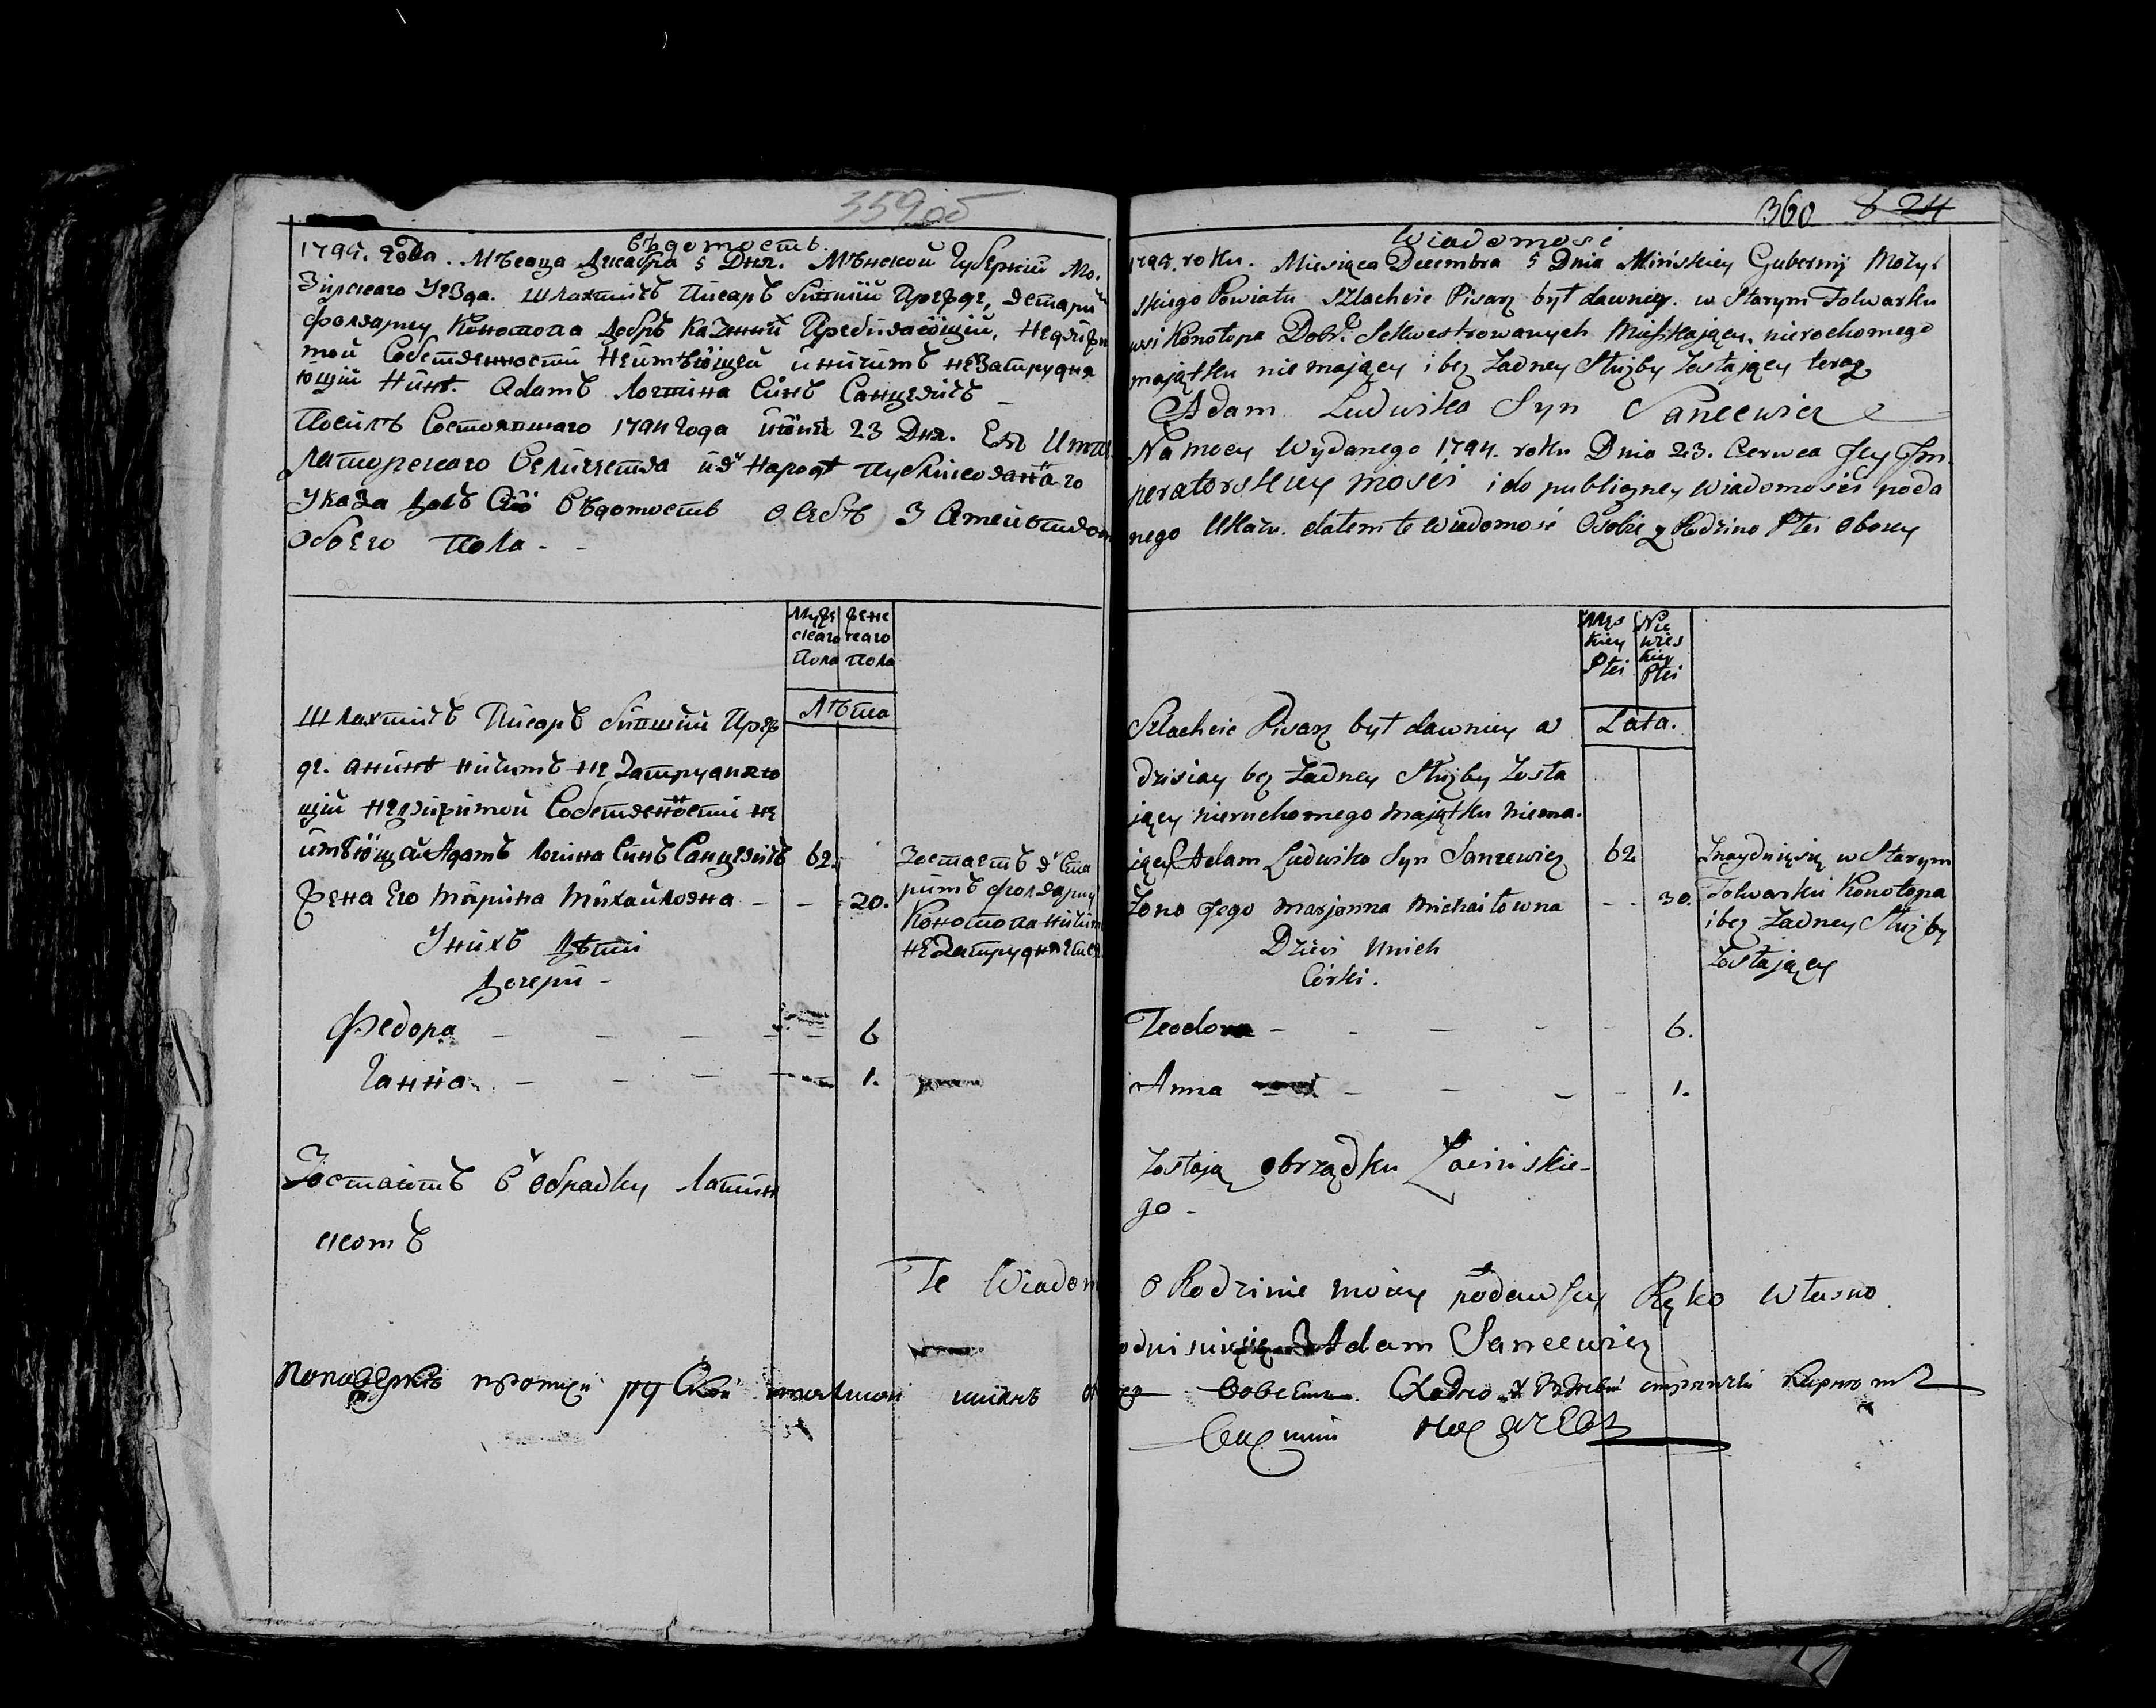 359 об
вѣдомость
1794. года. Мѣсяца Декабря 5 Дня. Мѣнской Губерніи Мо-
зирскаго Уезда. Шляхтичъ Писаръ бившій Прежде, в старий
фолварку Конотопа добръ Казнний Пребивающий, недвижи
мой Собственности неимѣющей и ничимъ незатрудня
ющій Нинѣ. Адамъ Логвина Синъ Санцевичъ
Посилѣ Состоявшаго 1794 года июня 23 Дня. Ея Импе
раторскаго Величества и в народѣ публикованнаго
Указа далъ Сию вѣдомость о себѣ З Семействомъ
обоего пола -
Муже
скаго
Пола
жене
скаго
Пола
Лѣта
Шляхтичъ Писаръ бившій Преж
де. а нинѣ ничимъ не Затрудняю
щій недвижимой Собственности не
имѣющей Адамъ Логвина Синъ Санцевичъ 62.
Жена Его Марина Михайловна - - 20.
Зостаетъ в Ста
римъ фолварку
Конотопа ничим
не Затрудняется
У нихъ Дѣти
Дочери -
Федора - - - - 6
Ганна - - - - 1.
Зостаютъ в обрадку Латин
скомъ
360 24
Wiadomość
1794. roku. Miesiąca Decembra 5 Dnia Mińskiey Gubernij Mozyr
skiego Powiatu Szlachcic Pisarz był dawniey. w Starym Folwarku
wsi Konotopa Dobr. Sekwestrowanych Mieszkaiący. nierochomego
maiątku nie maiący i bez Żadney Służby Zostaiący teraz
Adam Ludwika Syn Sancewicz
Na mocy Wydanego 1794. roku Dnia 23. Czerwca Jey Im-
peratorskiey mości i do publiczney wiadomości poda
nego Ukazu. dałem te wiadomość Osobie z Rodzino Płci oboiey
Męs
kiey
Płci
Nie
wies
kiey
Płci
Lata.
Szlachcic Pisarz był dawniey a
dzisiay bez Żadney Służby Zosta
iący nieruchomego maiątku niema-
iący Adam Ludwika Syn Sancewicz 62
Żona Jego Marjanna Michaiłowna - - 30.
Znayduięsię w Starym
Folwarku Konotopa
i bez Żadney Służby
Zostaiący
Dzieci Unich
Córki.
Teodora - - - - - 6.
Anna - - - - 1.
Zostaią obrządku Łacińskie-
go -
Te Wiadom o Rodzinie moiey podawszy Ręko Własno
Adam Sancewicz